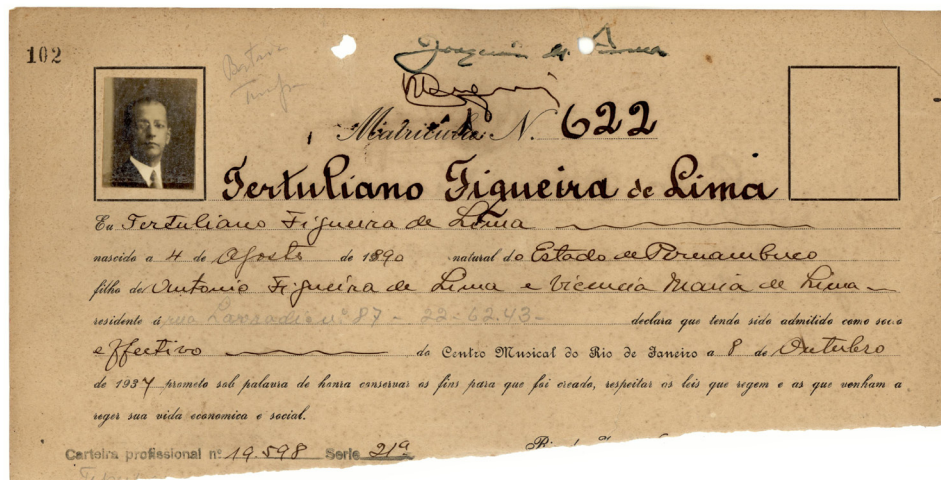 102
Joaquim de
Matricula N. 622
Tertuliano Figueira de Lima
Eu Tertuliano Figueira de Lima
nascido a 4 de Agosto de 1890 natural do Estado de Pernambuco
filho de Antonio Figueira de Lima e Vicencia Maria de Lima
residente á rua nº 87 - 22-62.43- declara que tendo sido admitido como socio
effectivo do Centro Musical do Rio de Janeiro a 8 de Outubro
de 1937 prometo sob palavra de honra conservar os fins para que foi creado, respeitar as leis que regem e as que venham a
reger sua vida economica e social.
Carteira profissional nº 19.598 Serie 21ª